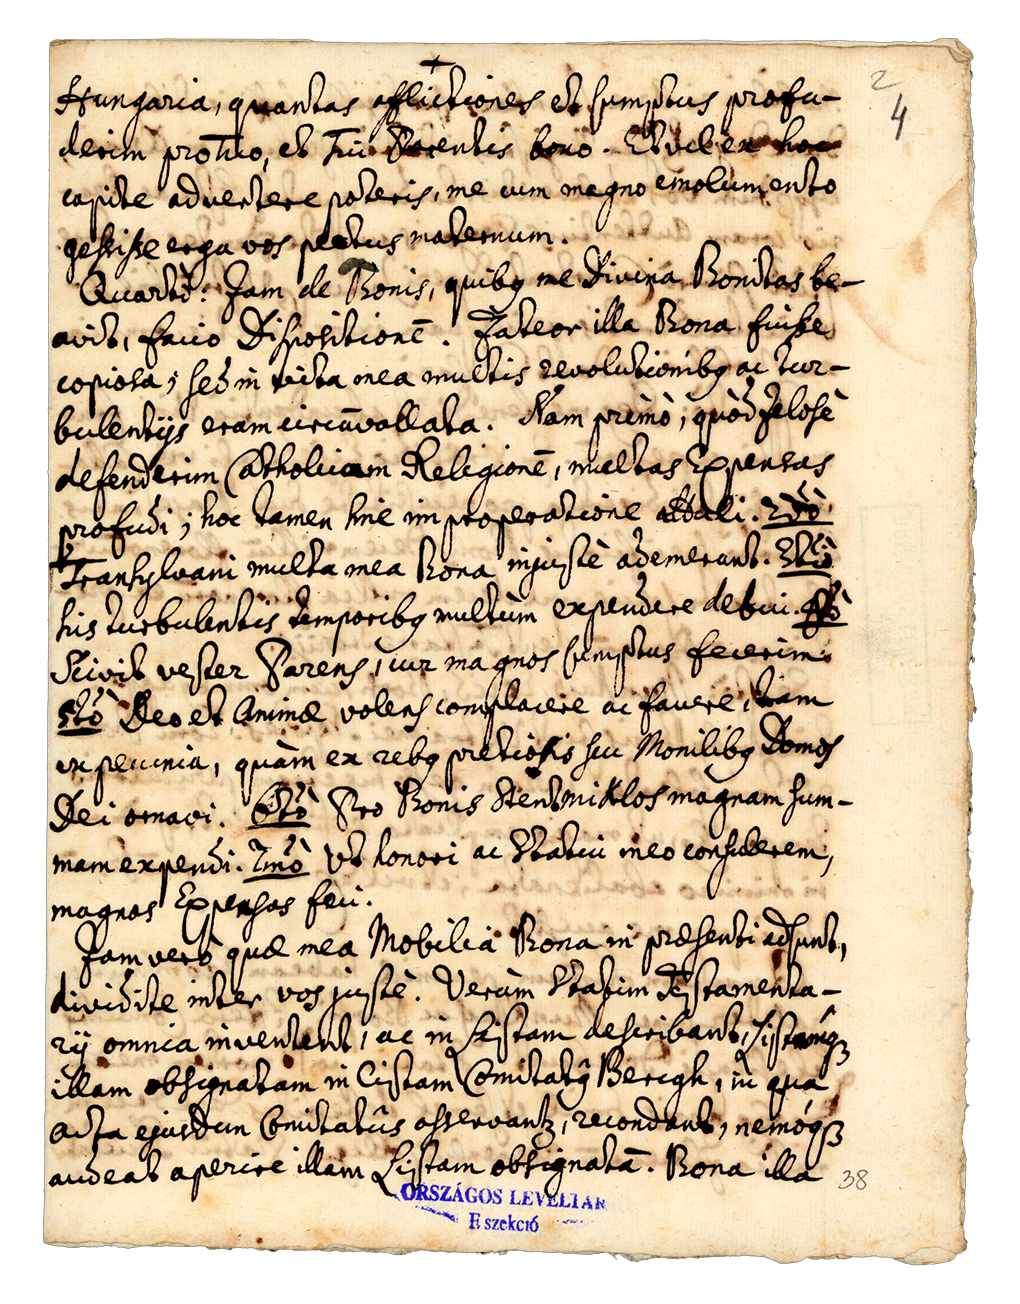 2
4
Hungaria, quantas afflictiones et sumptus profu-
derim pro tuo, et tui Parentis bono. Et vel ex hoc
capite advertere poteris, me cum magno emolumento
gessisse erga vos pectus maternum.
Quartò: Jam de Bonis, quibq me Divina Bonitas be-
avit, facio Dispositionē. Fateor illa Bona fuisse
copiosa; sed in vita mea multis revolutionibq ac tur-
bulentijs eram circūvallata. Nam primò, quòd zelosè
defenderim Catholicam Religionē, multas Expensas
profudi; hoc tamen sine improperatione attuli. 2dò
Transylvani multa mea Bona injustè ademerunt. 3tiò
his turbulentis temporibq multùm expendere debui. 4tò
Scivit vester Parens, cur magnos sumptus fecerim.
5tò Deo et Animæ volens complacere ac favere, tam
in pecunia, quàm ex rebq pretiosis seu Monilibq Domos
Dei ornavi. 6tò Pro Bonis Szentmiklos magnam sum-
mam expendi. 7mò Ut honori ac Statui meo consulerem,
magnas Expensas feci.
Jam verò quæ mea Mobilia Bona in præsenti adsunt,
dividite inter vos justè. Verùm Statim Testamenta-
rij omnia invenient, ac in Listam describant, Listamq3
illam obsignatam in Cistam Comitatq Beregh, in qua
acta ejusdem Comitatûs asservantz, recondant, nemóq3
audeat aperire illam Listam obsignatā. Bona illa
38
ORSZÁGOS LEVÉLTÁR
E szekció